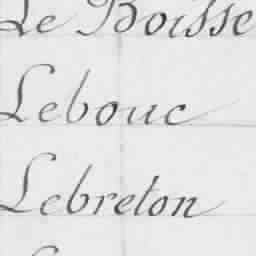 Le Boisse
Lebouc
Lebreton